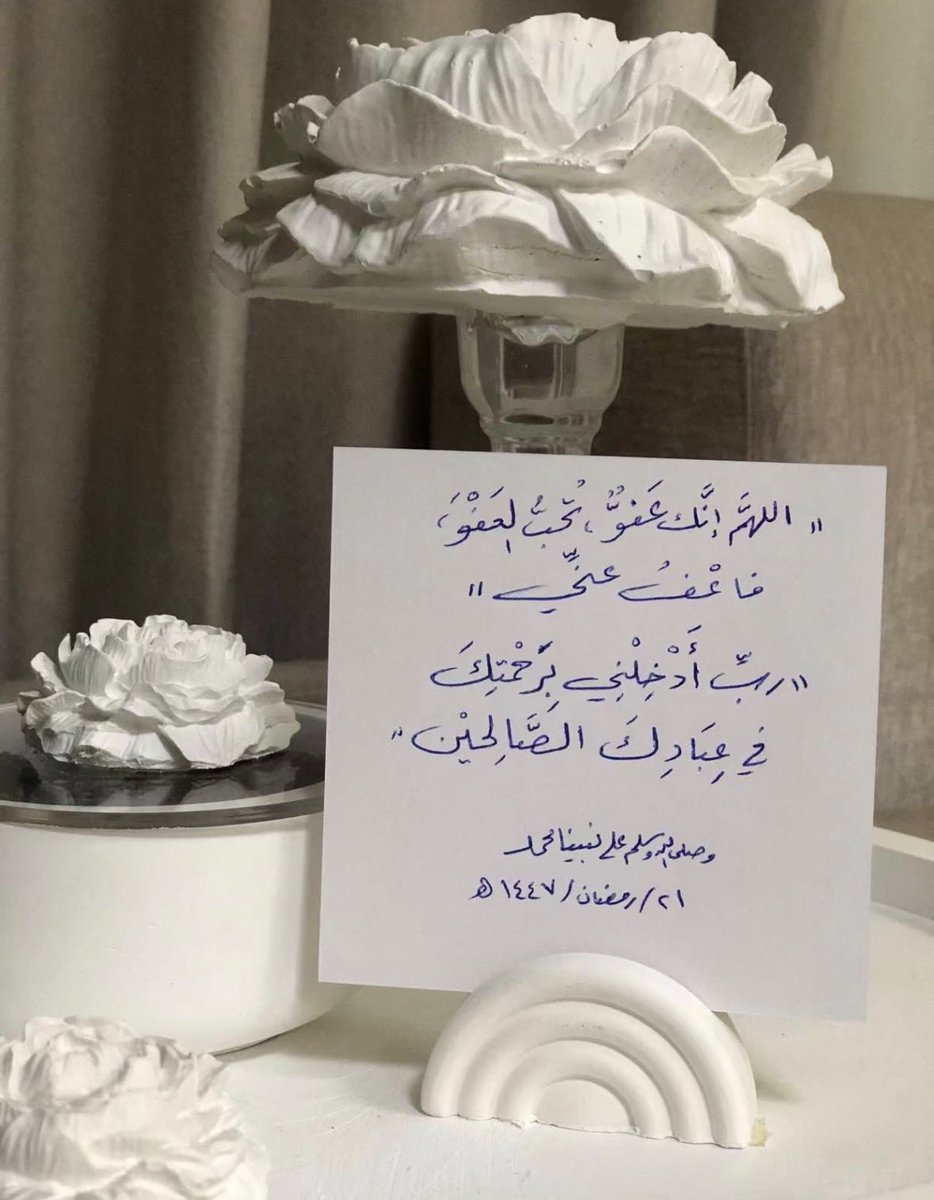 "اللهمَّ إنَّك عَفوٌّ، تُحِبُّ العَفْوَ،
فاعْفُ عنِّي"
"ربِّ أَدْخِلْنِي بِرَحْمَتِكَ
في عِبَادِكَ الصَّالِحيْن"
وصلى الله وسلم على نبينا محمد
٢١/رمضان/١٤٤٧هـ